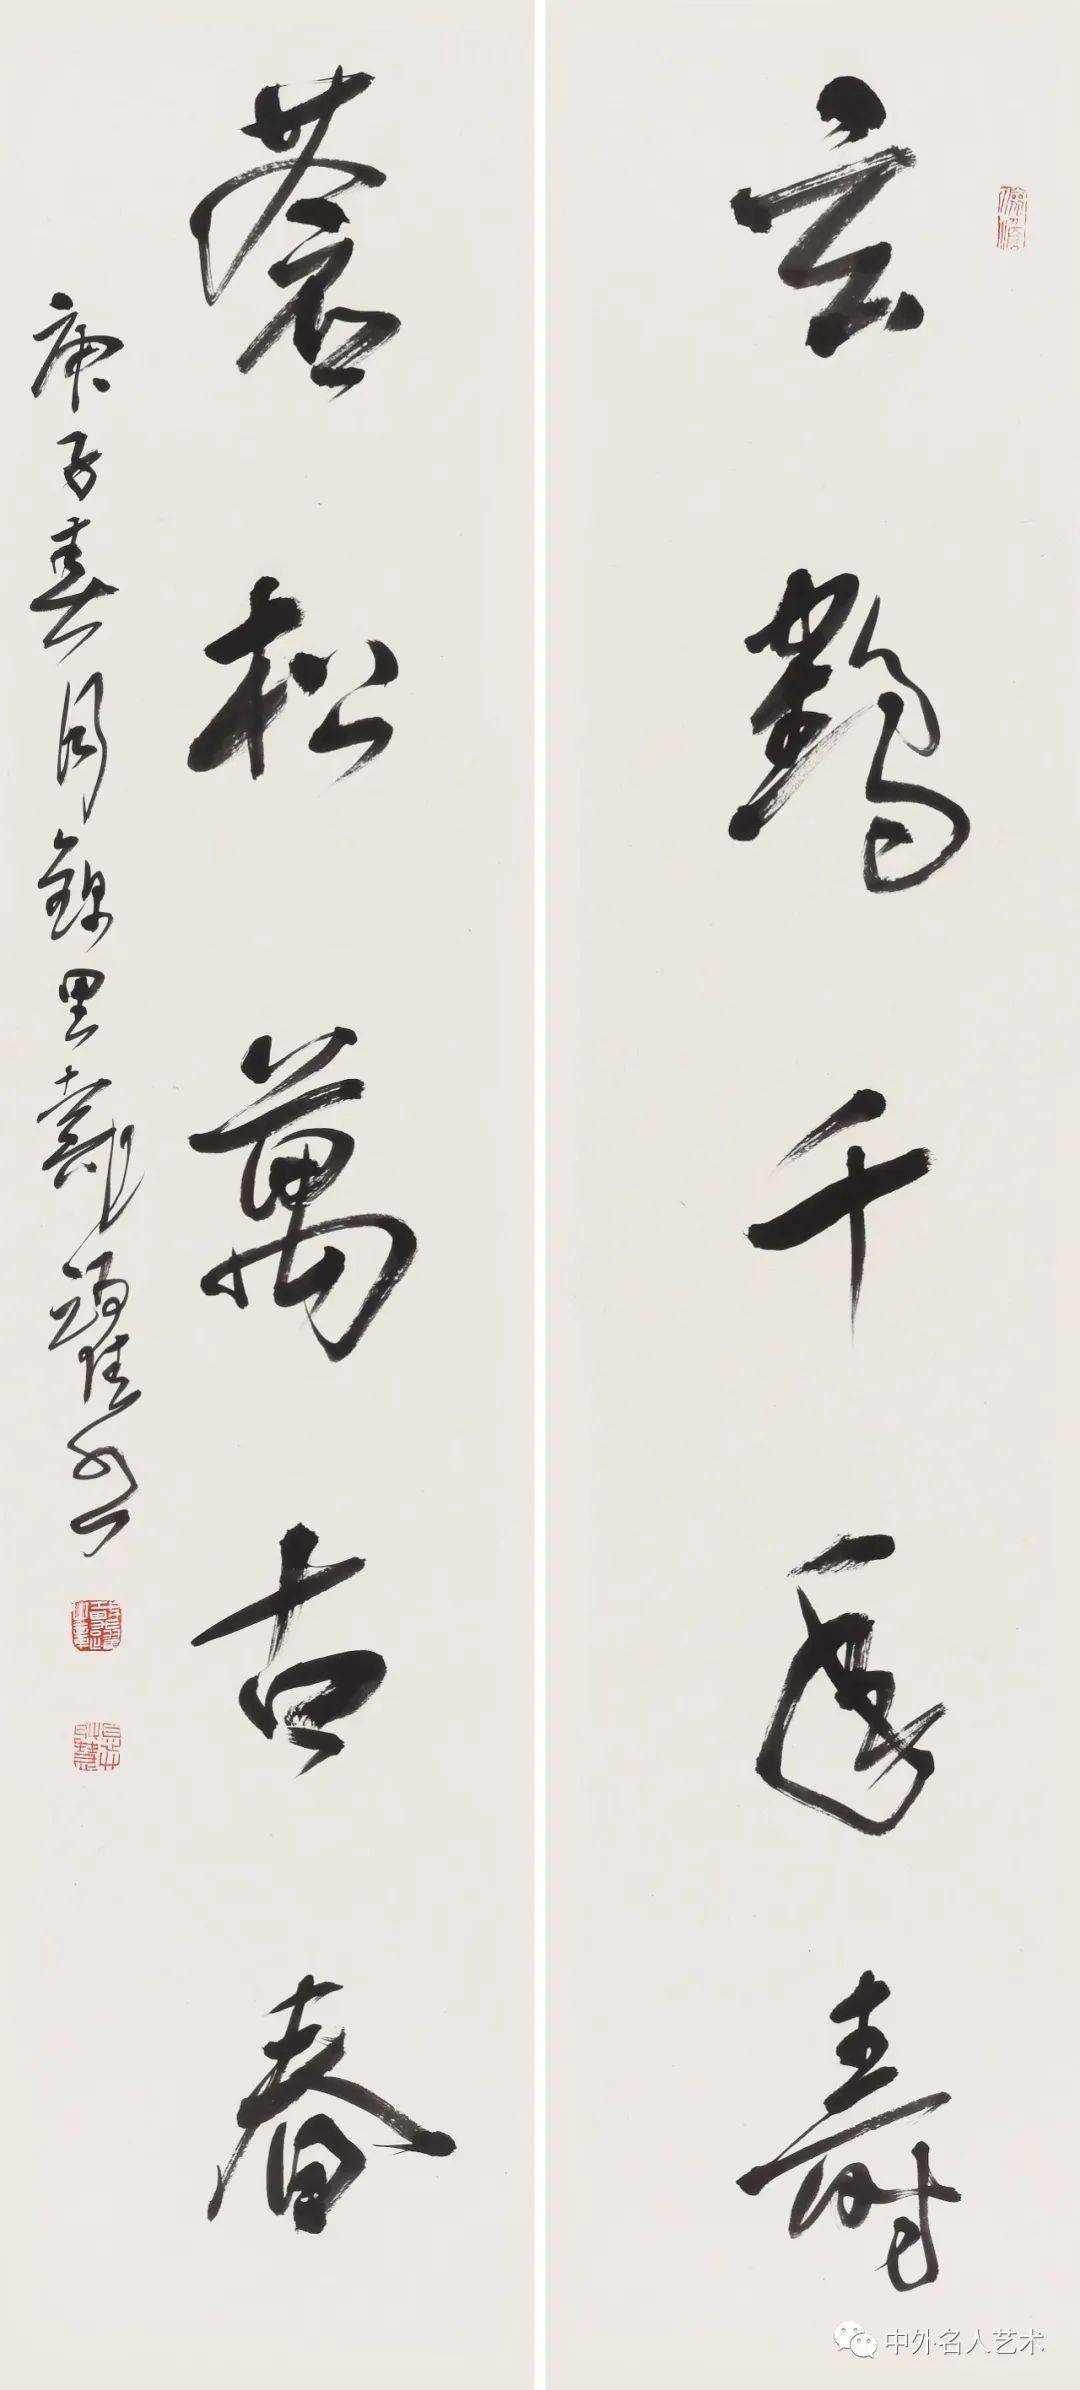 玄鶴千歲壽
蒼松萬古春
庚子春月錦里戴躍
中外名人艺术